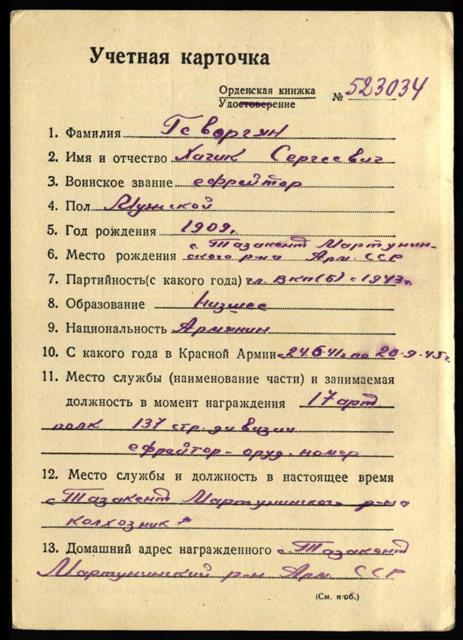 Учетная карточка
Орденская книжка
Удостоверение
№ 523034
1. Фамилия Геворгян
2. Имя и отчество Хачик Сергеевич
3. Воинское звание ефрейтор
4. Пол Мужской
5. Год рождения 1909г.
с. Тазакент Мартунин-
6. Место рождения ского р-на Арм. ССР
7. Партийность (с какого года) чл. ВКП(б) с 1943г.
8. Образование Низшее
9. Национальность Армянин
10. С какого года в Красной Армии с 24.6.41 по 20-9-45г
11. Место службы (наименование части) и занимаемая
должность в момент награждения 17 арт
полк 137 стр. дивизии
ефрейтор - оруд. номер
12. Место службы и должность в настоящее время
с. Тазакент Мартунинского р-на
колхозник
13. Домашний адрес награжденного с. Тазакент
Мартунинский р-н Арм. ССР
(См. н об.)